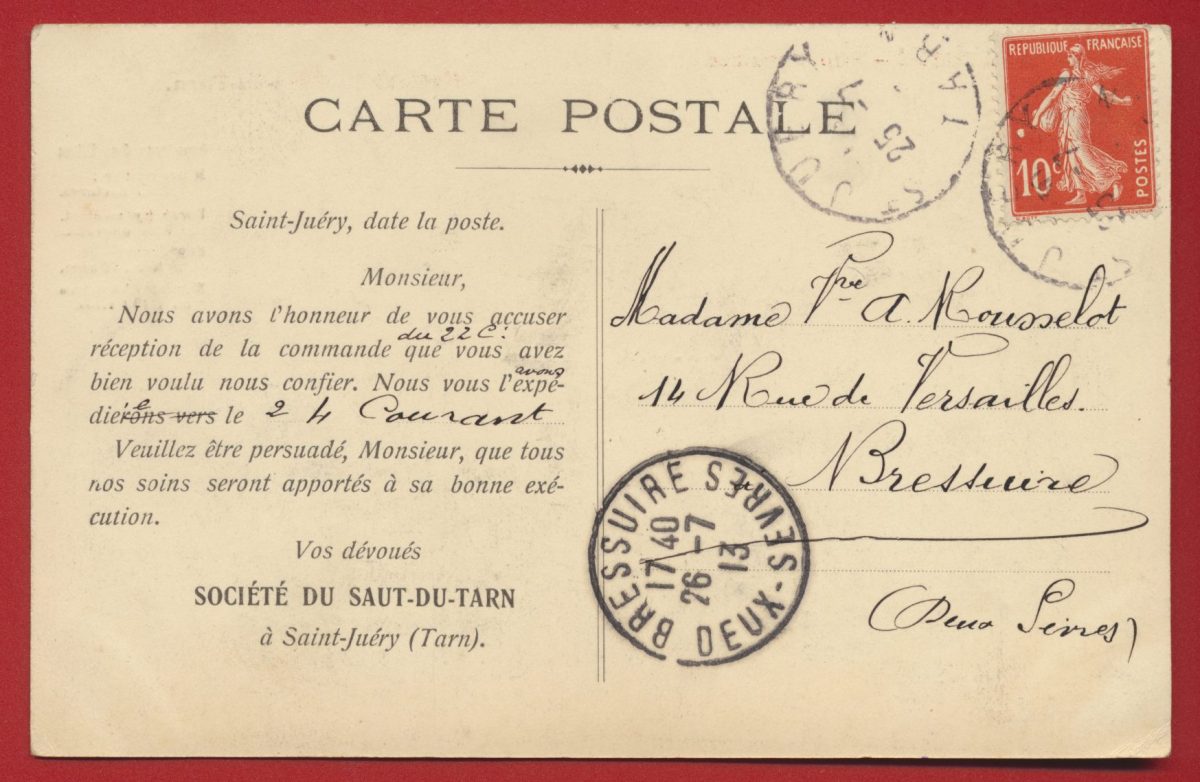 CARTE POSTALE
RÉPUBLIQUE FRANÇAISE
10c
POSTES
ST JUERY
25
Saint-Juéry, date la poste.
Monsieur,
Nous avons l'honneur de vous accuser
du 22 C.
réception de la commande que vous avez
avons
bien voulu nous confier. Nous vous l'expé-
é
dierons vers le 24 Courant
Veuillez être persuadé, Monsieur, que tous
nos soins seront apportés à sa bonne exé-
cution.
Vos dévoués
SOCIÉTÉ DU SAUT-DU-TARN
à Saint-Juéry (Tarn).
Madame Vve A. Rousselot
14 Rue de Versailles.
à Bressuire
(Deux Sèvres)
BRESSUIRE DEUX-SEVRES
17 40
26-7
13